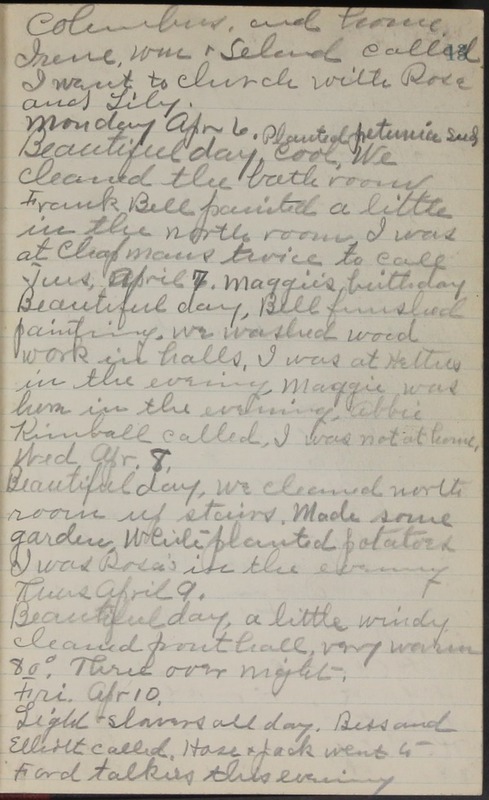 Columbus, and home.
Irene, Wm & Leland called. 43
I went to church with Rose
and Lily.
Monday Apr 6. Planted petunia seeds
Beautiful day, cool, We
cleaned the bath room
Frank Bell painted a little
in the north room, I was
at Chapmans twice to call
Tues, April 7. Maggie's birthday
Beautiful day, Bell finished
painting. we washed wood
work in halls, I was at Netties
in the evening, Maggie was
here in the evening, Abbie
Kimball called, I was not at home,
Wed Apr. 8.
Beautiful day, We cleaned north
room up stairs. Made some
garden, planted potatoes
I was Rosa's in the evening
Thurs April 9.
Beautiful day, a little windy
cleaned front hall, very warm
80°. over night.
Fri. Apr 10.
Light showers all day. Bess and
Elliott called. & Jack went to
Ford talkies this evening